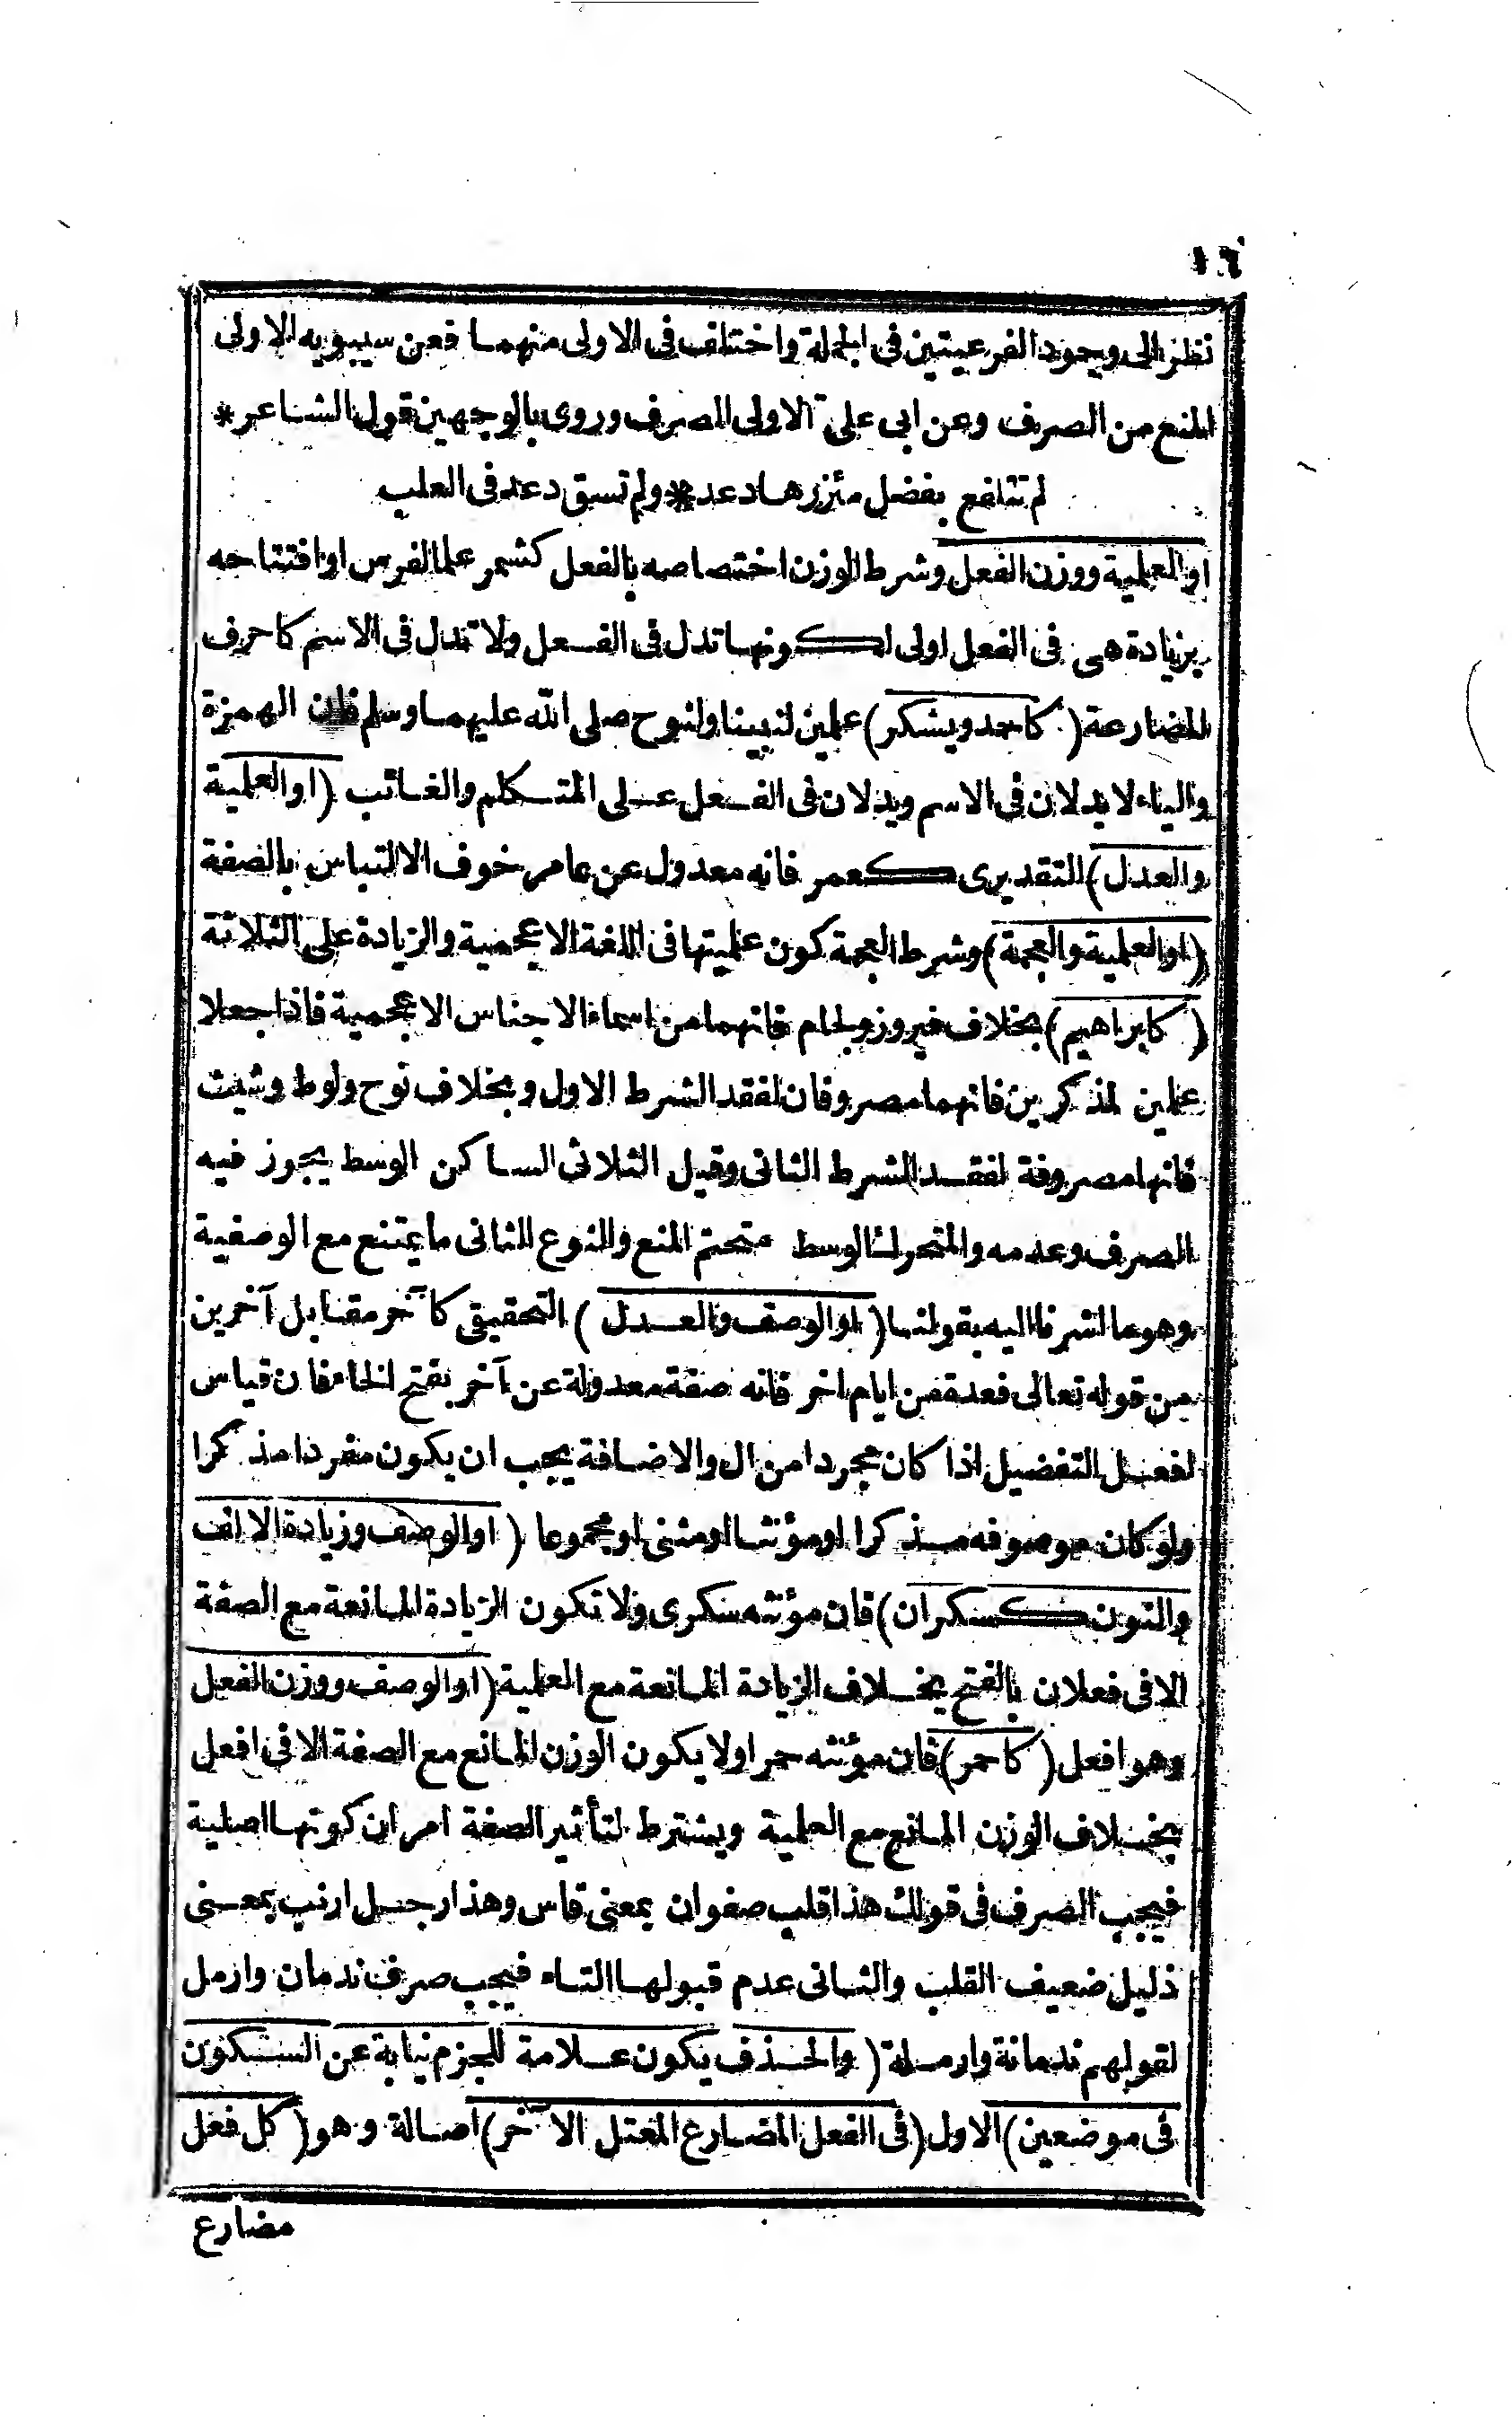 ١٦
نظرا الى وجود الفرعيتين فى الجملة واختلف فى الاولى منهما فعن سيبويه الاولى
المنع من الصرف وعن ابى على الاولى الصرف وروى بالوجهين قول الشاعر *
لم تتلفع بفضل مئزرها دعد * ولم تسق دعد فى العلب
او العلمية ووزن الفعل وشرط الوزن اختصاصه بالفعل كشمر علما لفرس او افتتاحه
بزيادة هى فى الفعل اولى لكونها تدل فى الفعل ولا تدل فى الاسم كاحرف
المضارعة (كاحمد ويشكر) علمين لنبينا ولنوح صلى الله عليهما وسلم فان الهمزة
والياء لا يدلان فى الاسم ويدلان فى الفعل على المتكلم والغائب (او العلمية
والعدل) التقديرى كعمر فانه معدول عن عامر خوف الالتباس بالصفة
(او العلمية والعجمة) وشرط العجمة كون علميتها فى اللغة الاعجمية والزيادة على الثلاثة
(كابراهيم) بخلاف فيروز ولجام فانهما من اسماء الاجناس الاعجمية فاذا جعلا
علمين لمذكرين فانهما مصروفان لفقد الشرط الاول وبخلاف نوح ولوط وشيث
فانها مصروفة لفقد الشرط الثانى وقيل الثلاثى الساكن الوسط يجوز فيه
الصرف وعدمه والمتحرك الوسط متحتم المنع والنوع الثانى ما يمتنع مع الوصفية
وهو ما اشرنا اليه بقولنا (او الوصف والعدل) التحقيقى كآخر مقابل آخرين
من قوله تعالى فعدة من ايام اخر فانه صفة معدولة عن آخر بفتح الخاء فان قياس
افعل التفضيل اذا كان مجردا من ال والاضافة يجب ان يكون مفردا مذكرا
ولو كان موصوفه مذكرا او مؤنثا او مثنى او مجموعا (او الوصف وزيادة الالف
والنون كسكران) فان مؤنثه سكرى ولا تكون الزيادة المانعة مع الصفة
الا فى فعلان بالفتح بخلاف الزيادة المانعة مع العلمية (او الوصف ووزن الفعل
وهو افعل (كاحمر) فان مؤنثه حمرا ولا يكون الوزن المانع مع الصفة الا فى افعل
بخلاف الوزن المانع مع العلمية ويشترط لتأثير الصفة امران كونها اصلية
فيجب الصرف فى قولك هذا قلب صفوان بمعنى قاس وهذا رجل ارنب بمعنى
ذليل ضعيف القلب والثانى عدم قبولها التاء فيجب صرف ندمان وارمل
لقولهم ندمانة وارملة (والحذف يكون علامة للجزم نيابة عن السكون
فى موضعين) الاول (فى الفعل المضارع المعتل الآخر) اصالة وهو (كل فعل
مضارع